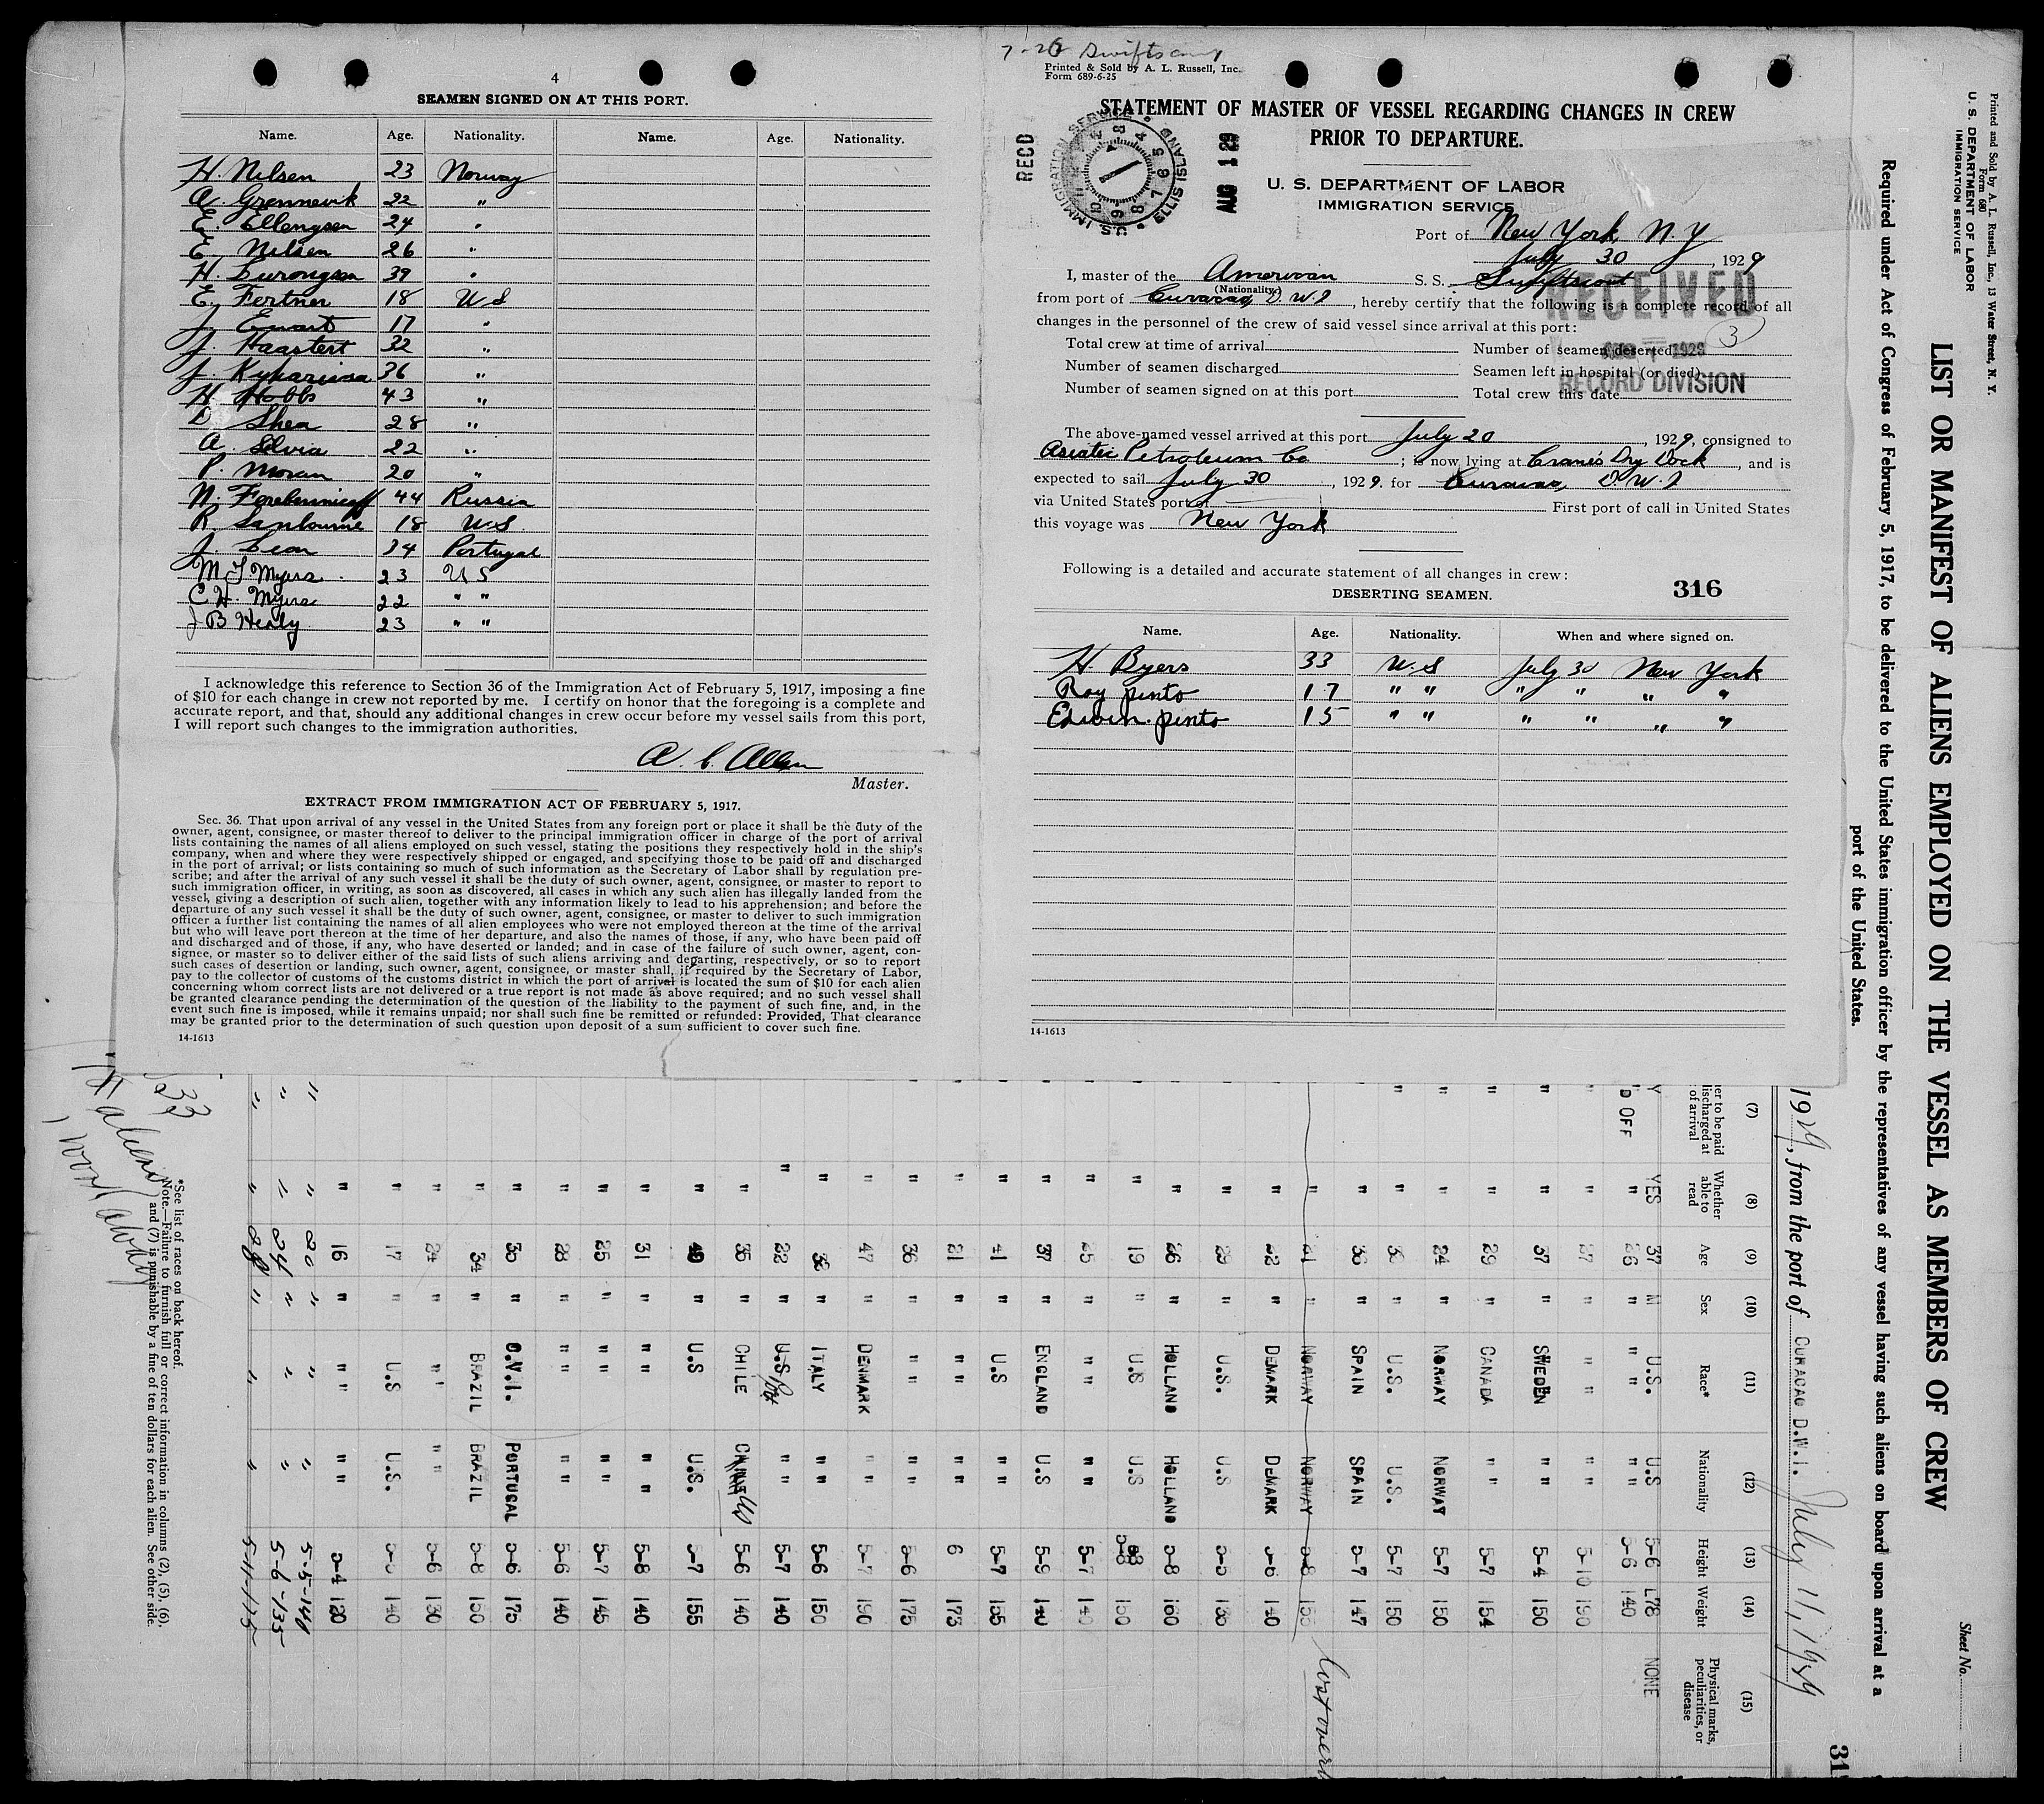 4
SEAMEN SIGNED ON AT THIS PORT.
Name. Age. Nationality. Name. Age. Nationality.
H. Nelsen 23 Norway
A. Grennevik 22 "
E. Ellengsen 24 "
E. Nilsen 26 "
H. 39 "
E. Fertner 18 U S
J. Ewart 17 "
J. Haastert 32 "
J. 36 "
H. Hobbs 43 "
D. Shea 28 "
A. Silvia 22 "
P. Moran 20 "
N. 44 Russia
R. Sanbourne 18 U.S.
J. Leon 34 Portugal
M J Myers 23 U S
C H. Myers 22 " "
J B Healy 23 " "
I acknowledge this reference to Section 36 of the Immigration Act of February 5, 1917, imposing a fine
of $10 for each change in crew not reported by me. I certify on honor that the foregoing is a complete and
accurate report, and that, should any additional changes in crew occur before my vessel sails from this port,
I will report such changes to the immigration authorities.
A. C. Allen
Master.
EXTRACT FROM IMMIGRATION ACT OF FEBRUARY 5, 1917.
Sec. 36. That upon arrival of any vessel in the United States from any foreign port or place it shall be the duty of the
owner, agent, consignee, or master thereof to deliver to the principal immigration officer in charge of the port of arrival
lists containing the names of all aliens employed on such vessel, stating the positions they respectively hold in the ship's
company, when and where they were respectively shipped or engaged, and specifying those to be paid off and discharged
in the port of arrival; or lists containing so much of such information as the Secretary of Labor shall by regulation pre-
scribe; and after the arrival of any such vessel it shall be the duty of such owner, agent, consignee, or master to report to
such immigration officer, in writing, as soon as discovered, all cases in which any such alien has illegally landed from the
vessel, giving a description of such alien, together with any information likely to lead to his apprehension; and before the
departure of any such vessel it shall be the duty of such owner, agent, consignee, or master to deliver to such immigration
officer a further list containing the names of all alien employees who were not employed thereon at the time of the arrival
but who will leave port thereon at the time of her departure, and also the names of those, if any, who have been paid off
and discharged and of those, if any, who have deserted or landed; and in case of the failure of such owner, agent, con-
signee, or master so to deliver either of the said lists of such aliens arriving and departing, respectively, or so to report
such cases of desertion or landing, such owner, agent, consignee, or master shall, if required by the Secretary of Labor,
pay to the collector of customs of the customs district in which the port of arrival is located the sum of $10 for each alien
concerning whom correct lists are not delivered or a true report is not made as above required; and no such vessel shall
be granted clearance pending the determination of the question of the liability to the payment of such fine, and, in the
event such fine is imposed, while it remains unpaid; nor shall such fine be remitted or refunded: Provided, That clearance
may be granted prior to the determination of such question upon deposit of a sum sufficient to cover such fine.
14-1613
7-26
Printed & Sold by A. L. Russell, Inc.
Form 689-6-25
STATEMENT OF MASTER OF VESSEL REGARDING CHANGES IN CREW
PRIOR TO DEPARTURE.
RECD
U.S. IMMIGRATION SERVICE ELLIS ISLAND
AUG 1 29
U. S. DEPARTMENT OF LABOR
IMMIGRATION SERVICE
Port of New York, N. Y
July 30, 1929
I, master of the American S. S. Swiftscout
(Nationality)
from port of Curacao, D. W. I, hereby certify that the following is a complete record of all
changes in the personnel of the crew of said vessel since arrival at this port:
RECEIVED
3
Total crew at time of arrival Number of seamen deserted
Number of seamen discharged Seamen left in hospital (or died)
Number of seamen signed on at this port Total crew this date
RECORD DIVISION
The above-named vessel arrived at this port July 20, 1929, consigned to
Asiatic Petroleum Co; is now lying at Crane's Dry Dock, and is
expected to sail July 30, 1929. for Curacao, D. W. I
via United States port of First port of call in United States
this voyage was New York
Following is a detailed and accurate statement of all changes in crew:
DESERTING SEAMEN. 316
Name. Age. Nationality. When and where signed on.
H. Byers 33 U. S July 30 New York
Roy pinto 17 " " " " " "
Edwin pinto 15 " " " " " "
14-1613
Sheet No.
Printed and Sold by A. L. Russell, Inc., 13 Water Street, N. Y.
Form 680
U. S. DEPARTMENT OF LABOR
IMMIGRATION SERVICE
LIST OR MANIFEST OF ALIENS EMPLOYED ON THE VESSEL AS MEMBERS OF CREW
Required under Act of Congress of February 5, 1917, to be delivered to the United States immigration officer by the representatives of any vessel having such aliens on board upon arrival at a
port of the United States.
1929, from the port of CURACAO D.W.I. July 11, 1929
(7) (8) (9) (10) (11) (12) (13) (14) (15)
er to be paid
ischarged at
of arrival
Whether able to read
Age
Sex
Race*
Nationality
Height
Weight
Physical marks, peculiarities, or disease
Y YES 37 M U.S. U.S 5-6 178 NONE
D OFF " 26 " " " " " 5-6 140
" " 27 " " " " " 5-10 190
" " 37 " SWEDEN " " 5-4 150
" " 29 " CANADA " " 5-7 154
" " 24 " NORWAY NORWAY 5-7 150
" " " U.S. U.S. 5-7 150
" " 36 " SPAIN SPAIN 5-7 147
" 21 " NORWAY NORWAY 5-8
" 22 " DEMARK DEMARK 140
" 29 " U.S. U.S 5-5
" 26 " HOLLAND HOLLAND 5-8 160
" 19 " U.S U.S 150
" 25 " " " " " 5-7 140
" 37 " ENGLAND U.S 5-9 140
" 41 " U.S " " 5-7 155
" 21 " " " " " 6 173
" 36 " " " " " 5-6 175
" 47 " DENMARK " " 5-7 190
" " ITALY " " 5-6 150
" 22 " U.S " " 5-7 140
" 35 " CHILE 5-6 140
" 40 " U.S U.S. 5-7 155
" 31 " " " " " 5-8 140
" 25 " " " " " 5-7 145
" 28 " " " " " 5-6 140
" 30 " C.V.I. PORTUGAL 5-6 175
" 34 " BRAZIL BRAZIL 5-8 150
" 24 " " " " " 5-6 130
" 17 " U.S U.S. 140
" 16 " " " " " 5-4 120
" " 20 " " " 5-5-140
" " 24 " " " 5-6-135
" " 28 " " " 5-11-175
*See list of races on back hereof.
Note.—Failure to furnish full or correct information in columns (2), (5), (6),
and (7) is punishable by a fine of ten dollars for each alien. See other side.
33
aliens